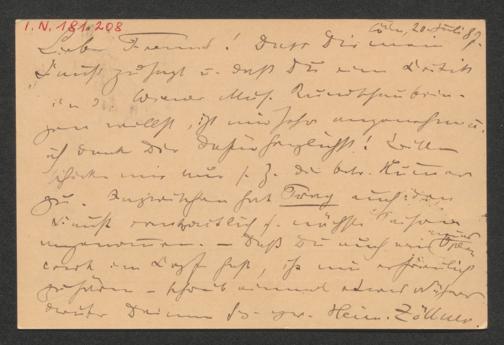 I. N. 181.208
Cöln, 20. Juli 89.
Lieber Freund! Dass Dir mein
"Faust" zusagt u. daß Du eine Kritik
in die Wiener Mus. Rundschau brin-
gen willst, ist mir sehr angenehm u.
ich danke Dir dafür herzlichst! Bitte
schicke mir nur s. Z. die betr. Numer
zu. Inzwischen hat Prag auch den
Faust contractlich f. nächste Saison
angenommen. – Daß Du auch ein neues Opern
werk im Kopf hast, ist mir erfreulich
zu hören – schreib einmal etwas Näheres
darüber Deinem Heinr. Zöllner.